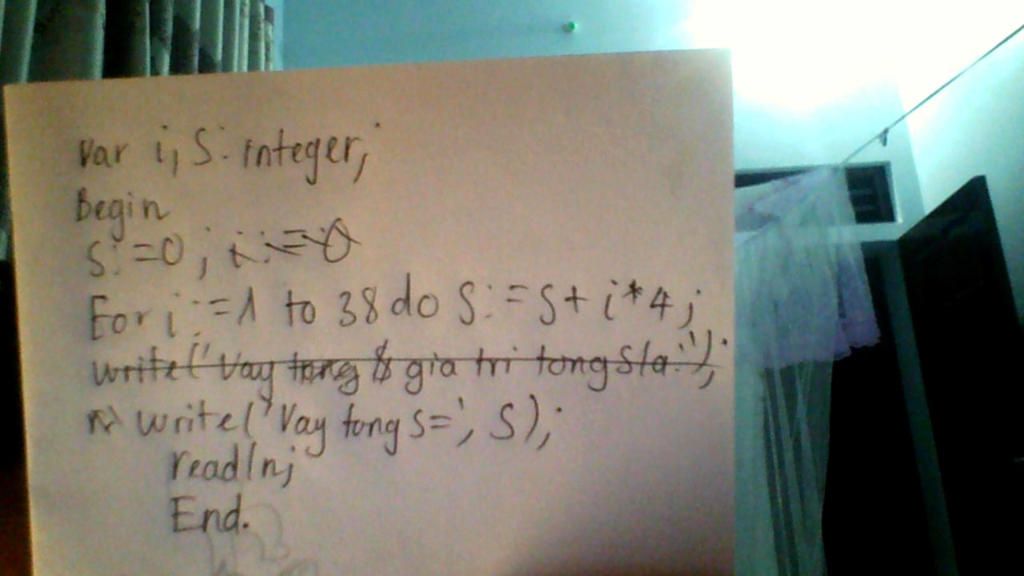 var i, S: integer;
Begin
S:=0; i:=0
For i:=1 to 38 do S:=S+i*4;
write('Vay tong S gia tri tong S la:');
write('Vay tong S=', S);
readln;
End.